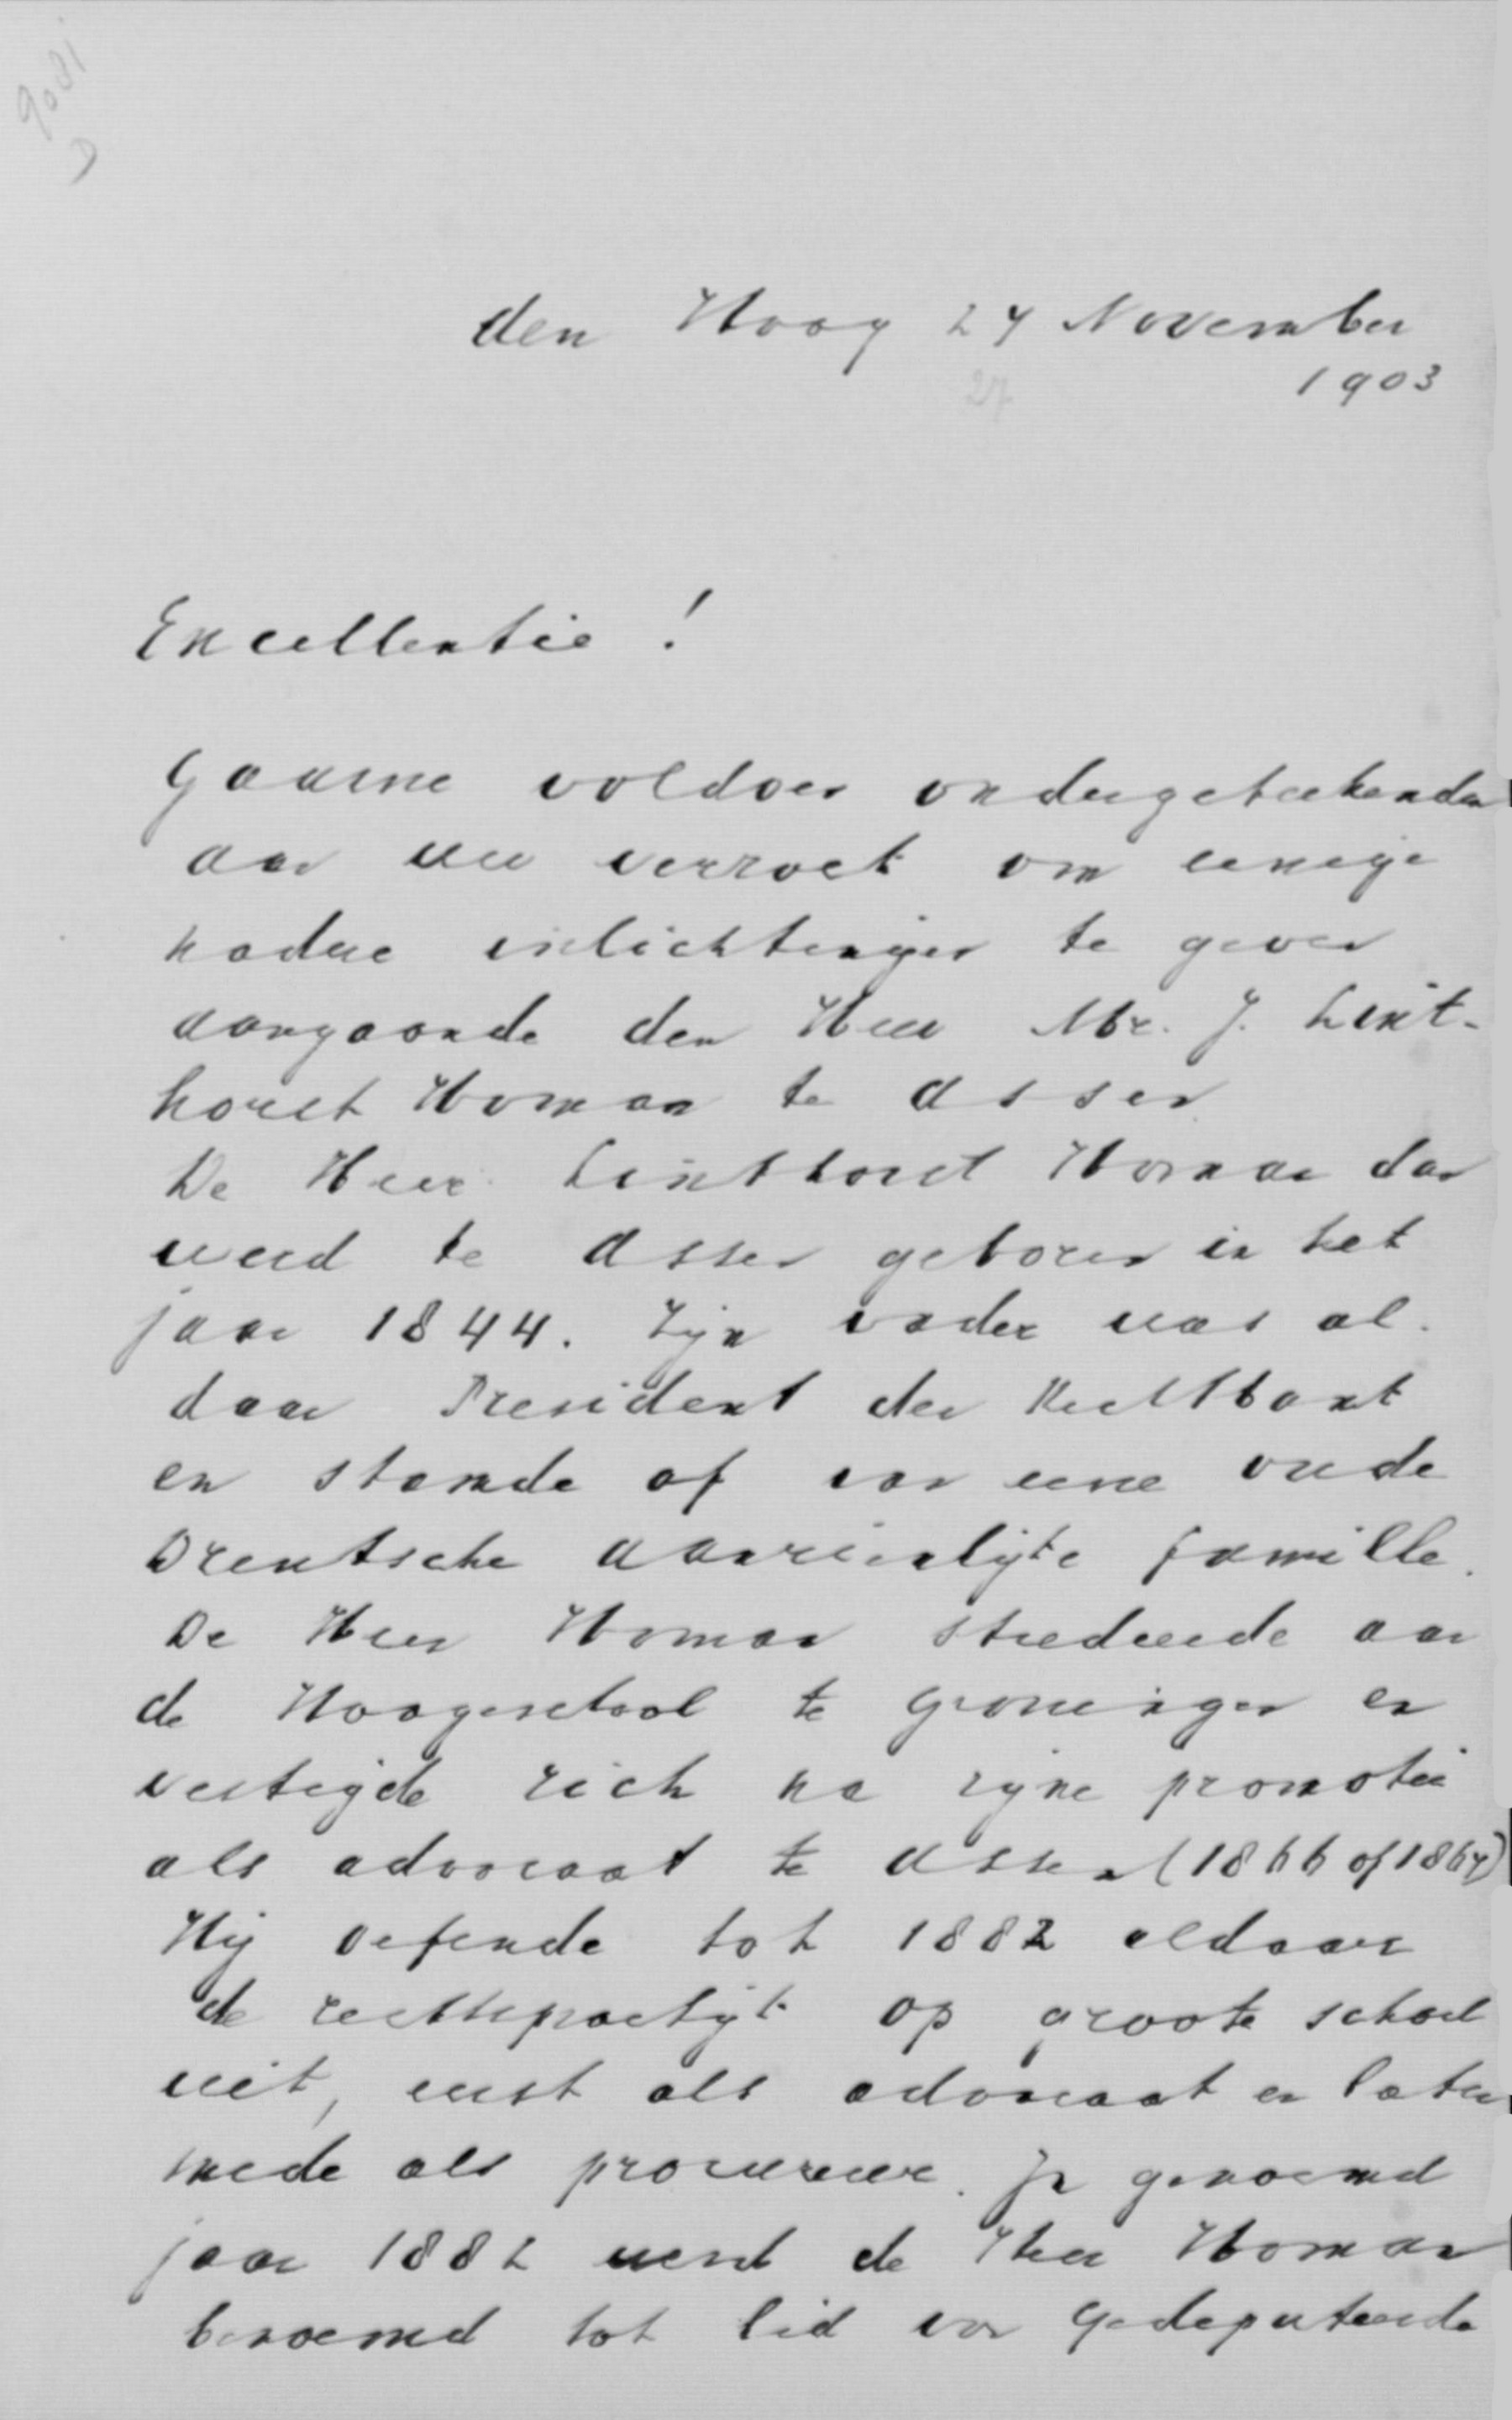 9081
D
den Haag 27 November
27
1903
Excellentie!
Gaarne voldoet ondergeteekende
aan uw verzoek om eenige
nadere inlichtingen te geven
aangaande den Heer Mr. J. Lint-
horst Homan te Assen
De Heer Linthorst Homan dan
werd te Assen geboren in het
jaar 1844. Zijn vader was al-
daar President der Rechtbank
en stamde af van eene oude
Drentsche aanzienlijke familie.
De Heer Homan studeerde aan
de Hoogeschool te Groningen en
vestigde zich na zijne promotie
als advocaat te Assen (1866 of 1867)
Hij oefende tot 1882 aldaar
de rechtspractijk op groote schaal
uit, eerst als advocaat en later
mede als procureur. In genoemd
jaar 1882 werd de Heer Homan
benoemd tot lid van Gedeputeerde